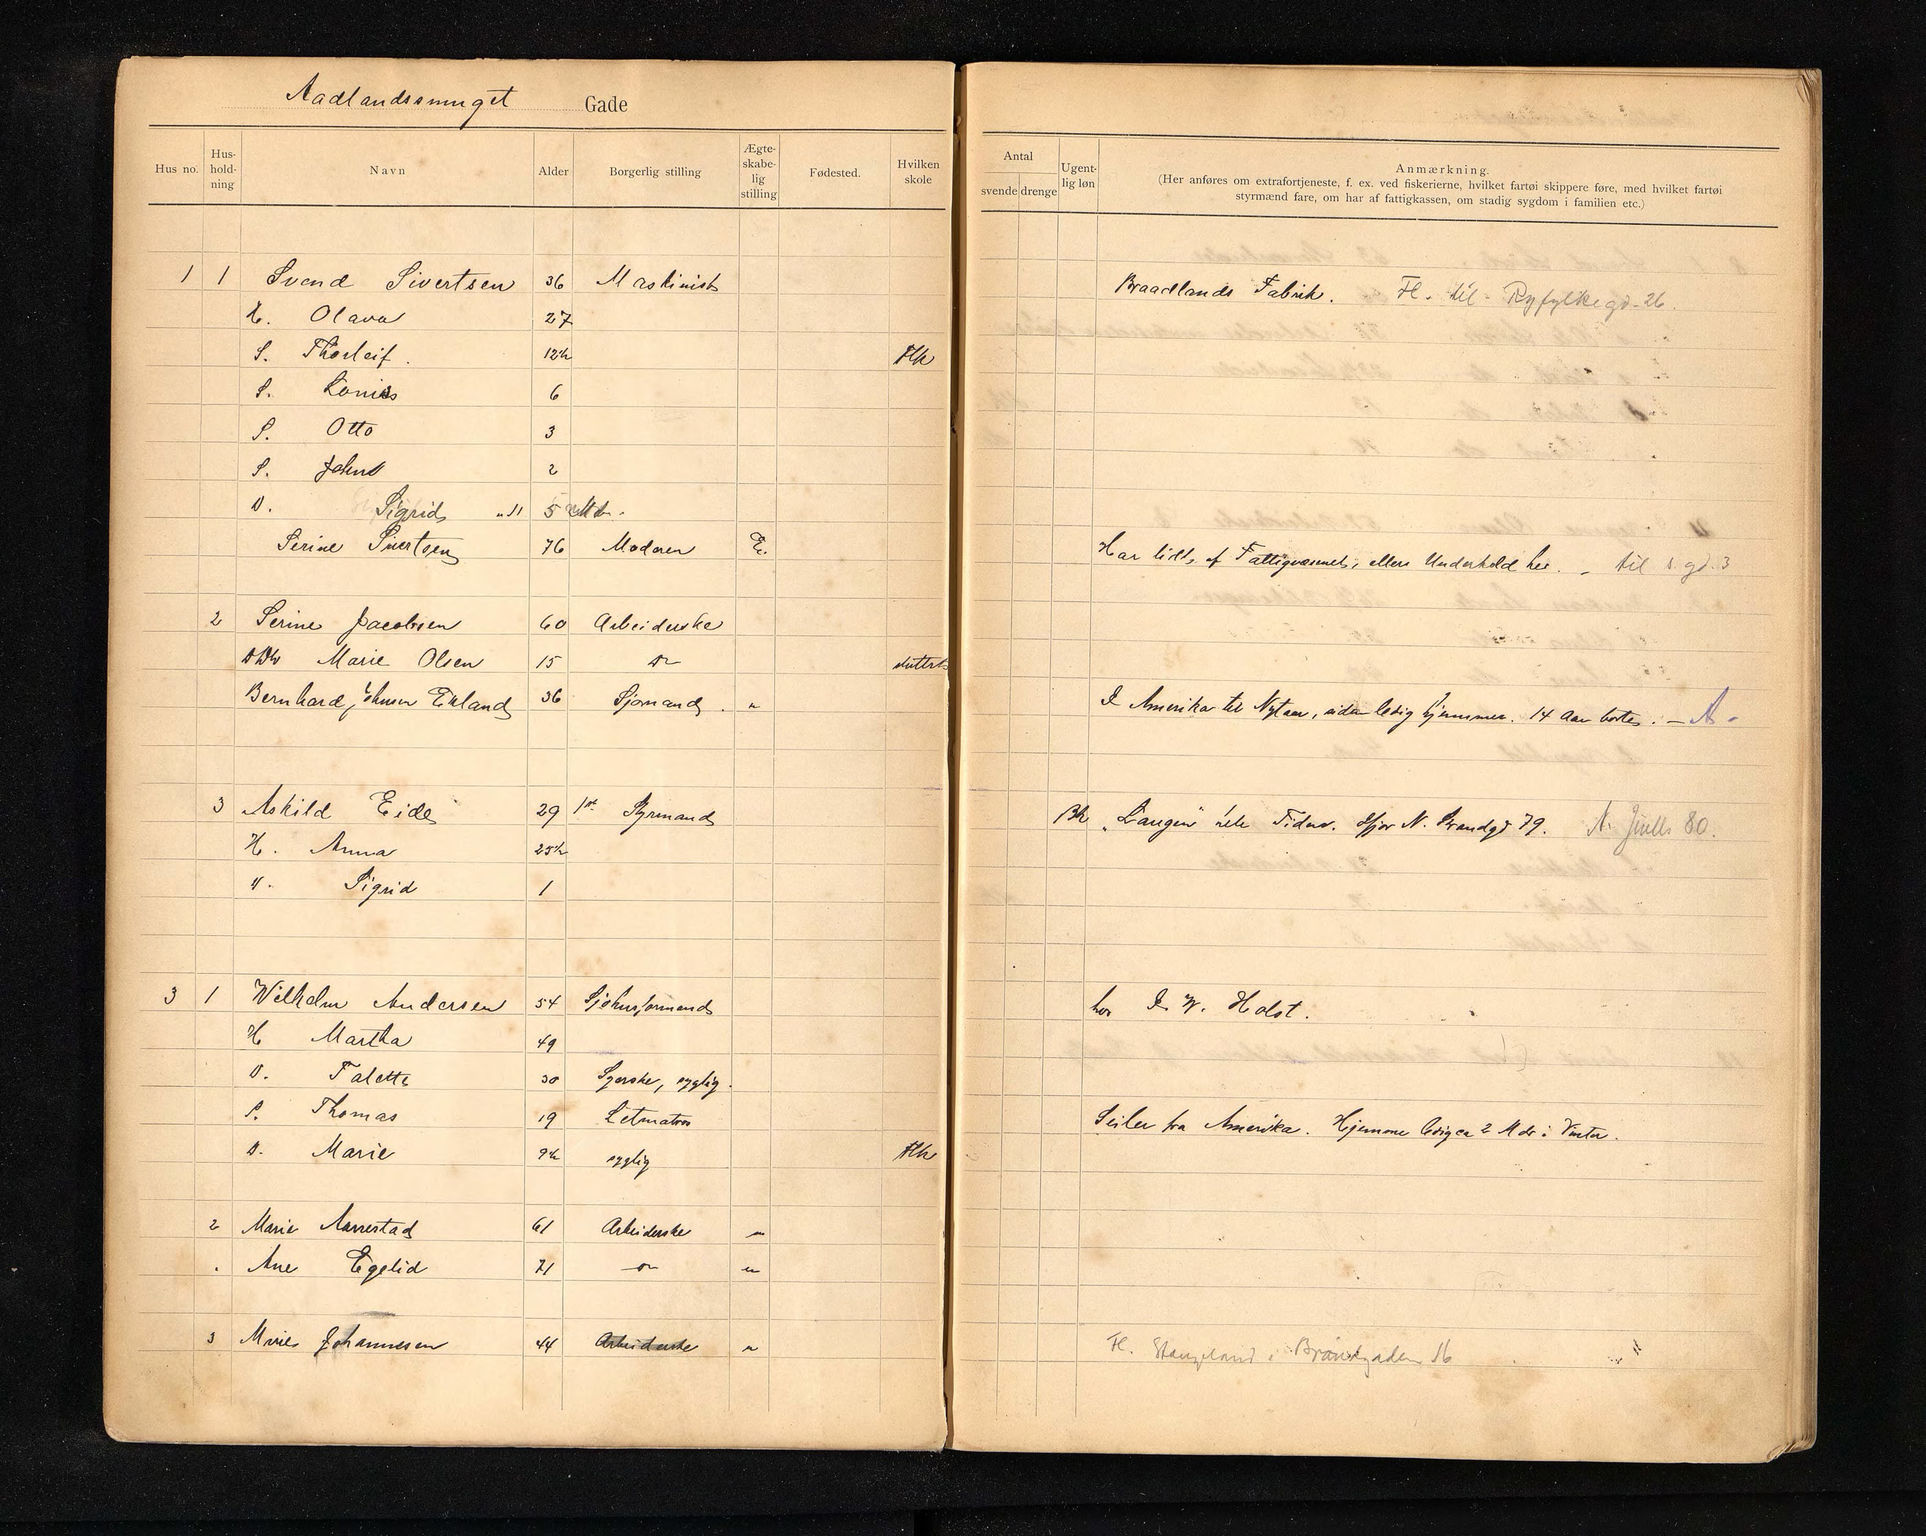 Aadlandssmuget Gade
Hus no. Hus-hold-ning Navn Alder Borgerlig stilling Ægte-skabe-lig stilling Fødested. Hvilken skole
Antal svende drenge Ugent-lig løn Anmærkning.
(Her anføres om extrafortjeneste, f. ex. ved fiskerierne, hvilket fartøi skippere føre, med hvilket fartøi
styrmænd fare, om har af fattigkassen, om stadig sygdom i familien etc.)
1 1 Svend Sivertsen 36 Maskinist Braadlands Fabrik. Fl. til Ryfylkegd. 26.
H. Olava 27
S. Thorleif. 12½ Flk
S. 6
S. Otto 3
S. John 2
D. Sigrid 5 Mdr.
Serine Sivertsen 76 Moderen E. Har lidt af Fattigvæsenet, ellers Underhold her. - til gd. 3
2 Serine Jacobsen 60 Arbeiderske
Marie Olsen 15 Do sluttet
Bernhard Johnsen Ekland 36 Sjømand. " I Amerika til Nytaar, siden ledig hjemme. 14 Aar borte. - A -
3 Askild Eide 29 1st Styrmand Bk "Laugen" hele Tiden. N. Strandgd 79. A. Juells 80.
H. Anna 25½
D. Sigrid 1
3 1 Wilhelm Andersen 54 Sjøhusformand hos I. W. Holst.
H Martha 49
D. Talette 30 Syerske, syglig.
S. Thomas 19 Letmatros Seiler fra Amerika. Hjemme ledig ca 2 Mdr i Vinter.
D. Marie 9½ syglig Flk
2 Marie Aarrestad 61 Arbeiderske "
. Ane Egelid 71 Do "
3 Marie Johannesen 44 Arbeiderske " Fl. Stangeland i Brandgaden 16